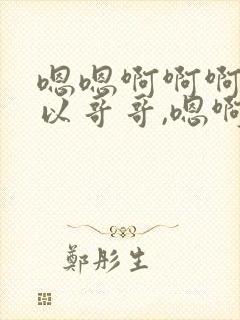 嗯嗯啊啊啊
以哥哥,嗯啊
鄭彤生